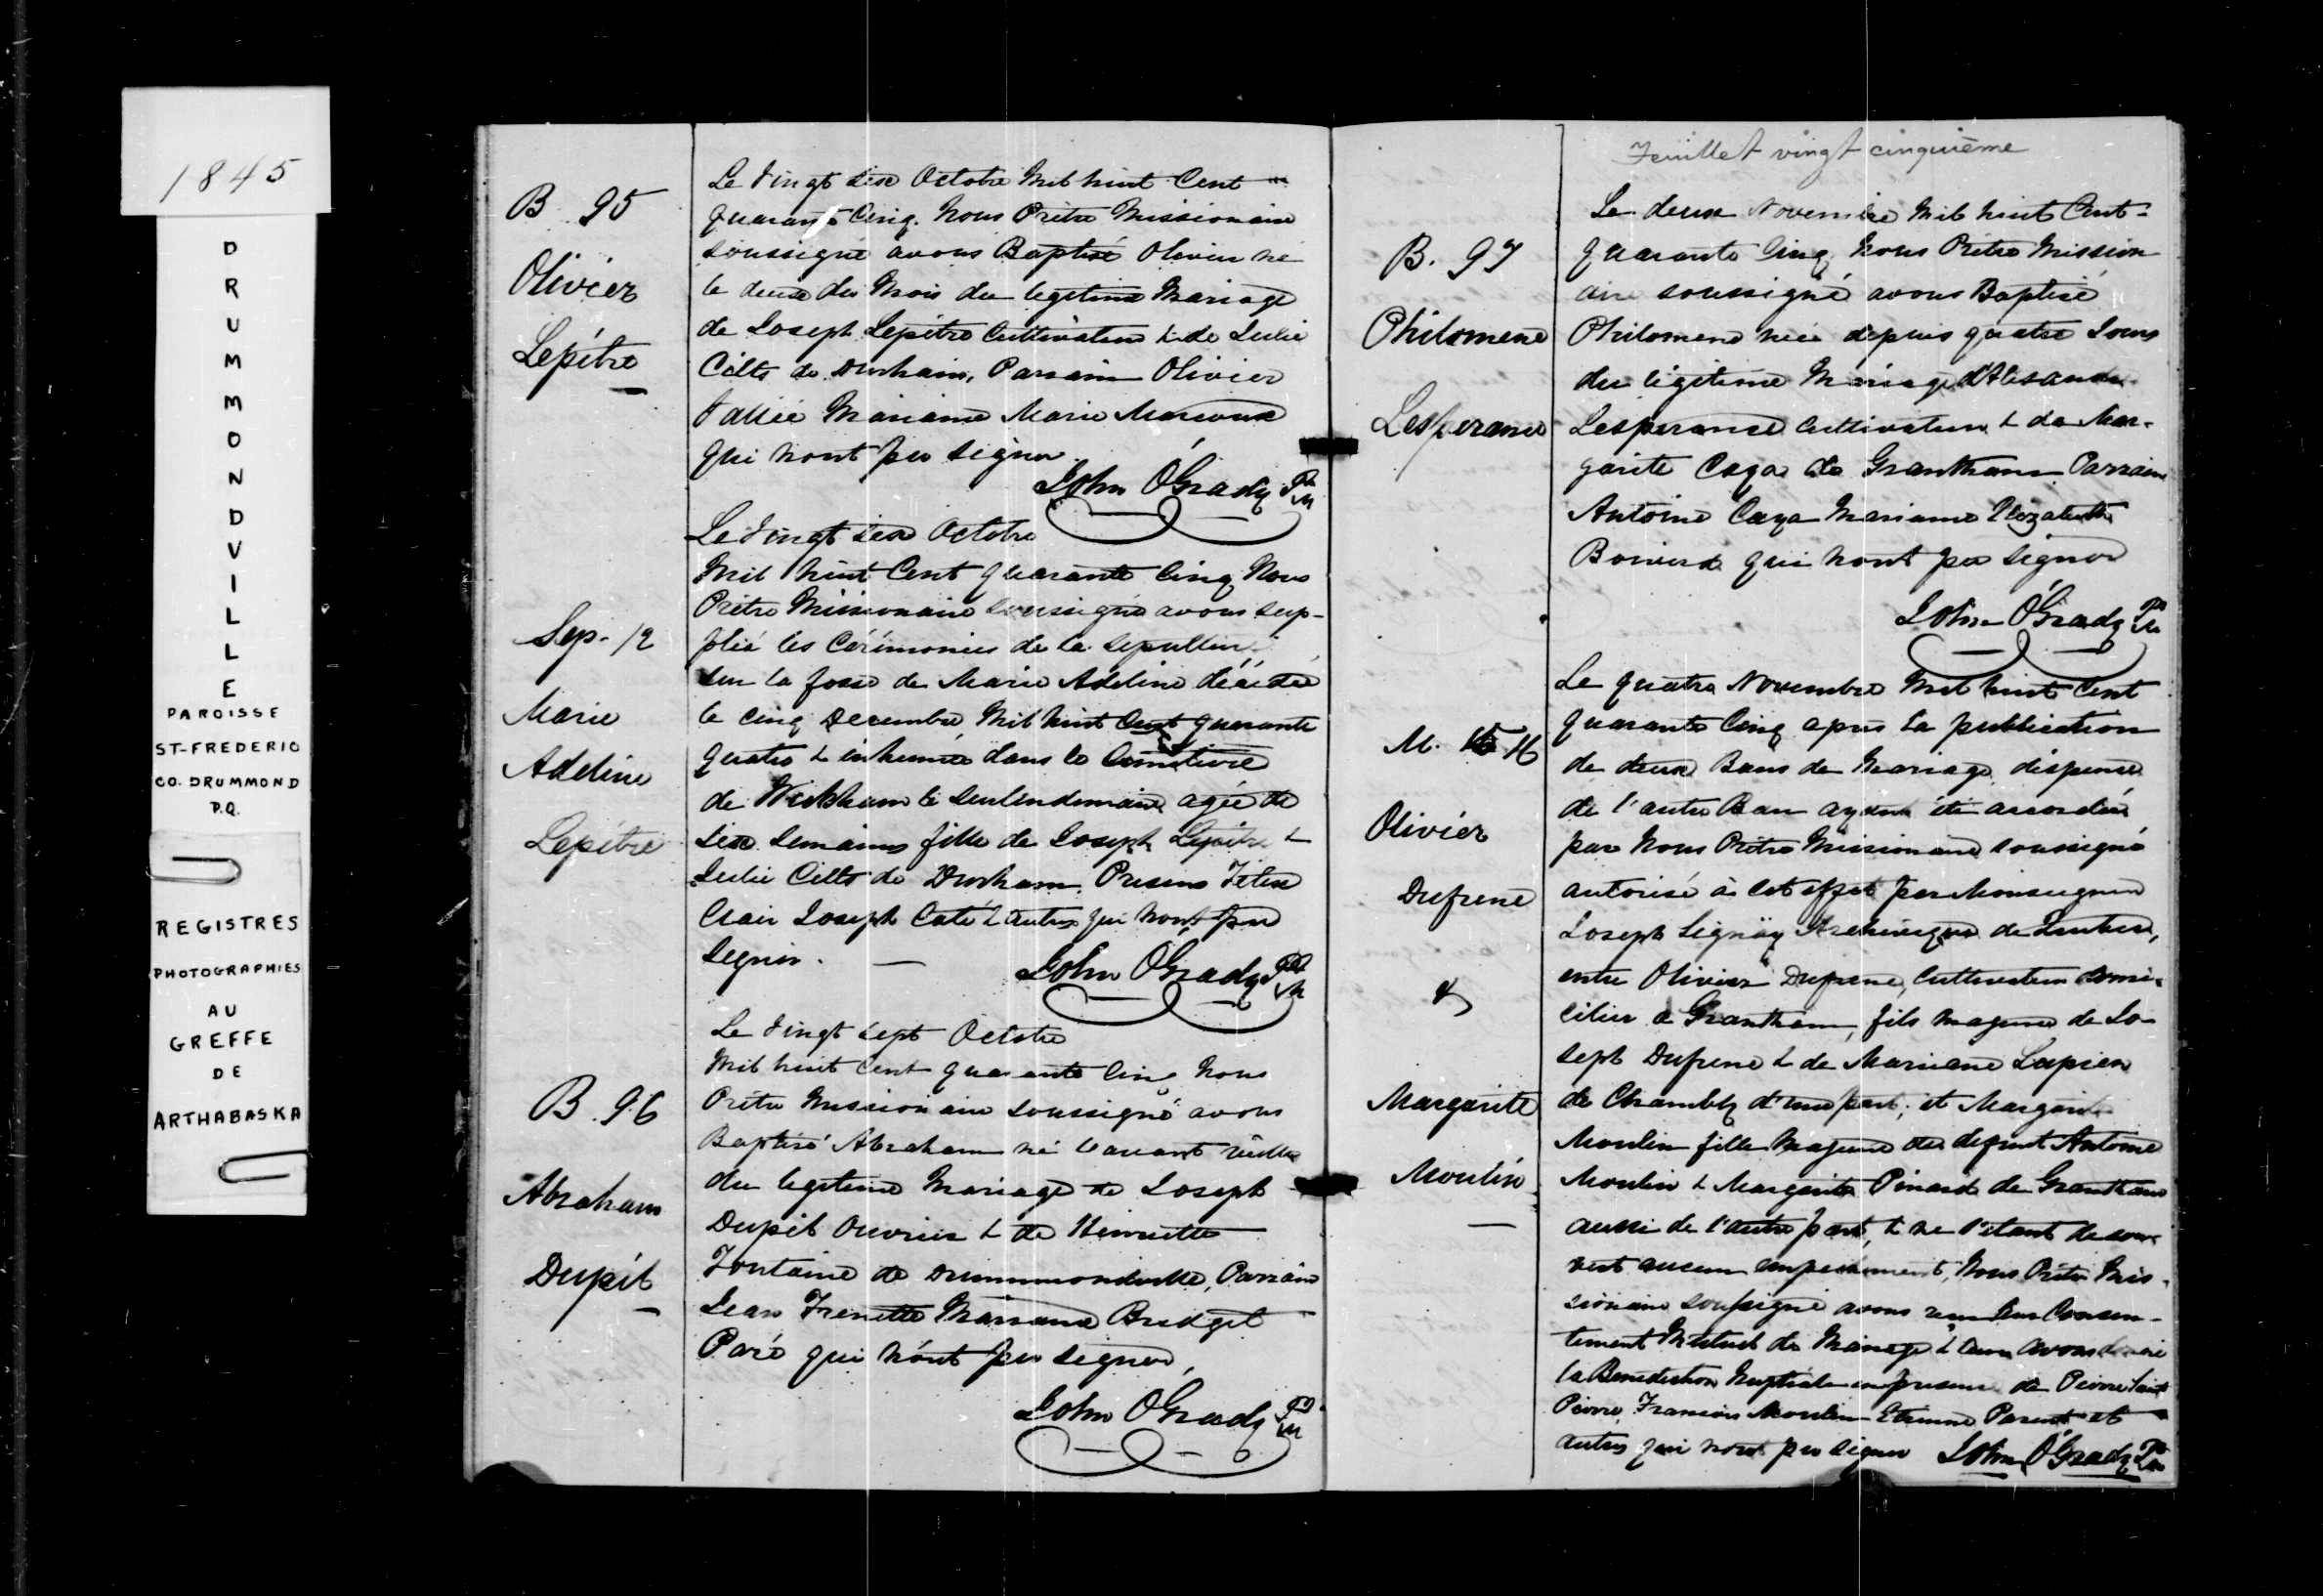 1845
DRUMMONDVILLE
PAROISSE
ST-FREDERIC
CO. DRUMMOND
P.Q.
REGISTRES
PHOTOGRAPHIES
AU
GREFFE
DE
ARTHABASKA
B. 95
Olivier
Lepitre
Le Vingt six Octobre Mil huit Cent
quarante Cinq. Nous Prêtre Missionaire
soussigné avons Baptisé Olivier né
le deux du Mois du legitime Mariage
de Joseph Lepitre Cultivateur & de Julie
Cilts de Durham, Parrain Olivier
Vallée Maraine Marie Marcoux
qui n'ont pu signer.
John O'Grady Ptr M
Sep. 12
Marie
Adeline
Lepitre
Le Vingt six Octobre
Mil huit Cent quarante Cinq Nous
Prêtre Missionaire soussigné avons sup-
plié les Cérémonies de la Sepulture
sur la fosse de Marie Adeline décédée
le cinq Decembre Mil huit Cent quarante
quatre & inhumée dans le Cimetiere
de Wickham le surlendemain agée de
six Semaines fille de Joseph Lepitre &
Julie Cilts de Durham. Presens Felix
Clair Joseph Caté & autres qui n'ont pu
signer.
John O'Grady Ptr M
B. 96
Abraham
Dupil
Le Vingt sept Octobre
Mil huit Cent quarante Cinq Nous
Prêtre Missionaire soussigné avons
Baptisé Abraham né l'avant veille
du legitime Mariage de Joseph
Dupil Ouvrier & de Henriette
Fontaine de Drummondville, Parrain
Jean Frenette Maraine Bridget
Paré qui n'ont pu signer,
John O'Grady Ptr M
Feuillet vingt cinquième
B. 97
Philomene
Lesperance
Le deux Novembre Mil huit Cent-
quarante Cinq Nous Prêtre Mission
aire soussigné avons Baptisé
Philomene née depuis quatre Jours
du légitime Mariage d'Alexandre
Lesperance Cultivateur & de Mar-
garite Caya de Grantham Parrain
Antoine Caya Maraine Elizabeth
qui n'ont pu signer
John O'Grady Ptr M
M. 16
Olivier
Dufrene
&
Margarite
Moulin
Le quatre Novembre Mil huit Cent
quarante Cinq apres la publication
de deux Bans de Mariage dispense
de l'autre Ban ayant été accordée
par Nous Prêtre Missionaire soussigné
autorisé à cet effet par Monseigneur
Joseph Signäy Archevêque de Quebec,
entre Olivier Dufrene, Cultivateur domi-
cilier à Grantham, fils majeur de Jo-
seph Dufrene & de Mariane Lapier
de Chambly d'une part; et Margarite
Moulin fille Majeure de defunt Antoine
Moulin & Margarite Pinard de Grantham
aussi de l'autre part, & ne s'étant decou-
vert aucun empechement, Nous Prêtre Mis-
sionaire soussigné avons reçu leur Consen-
tement Mutuel de Mariage & leur avons donné
la Benediction Nuptiale en presence de Pierre Saint
Pierre, Francois Moulin Etienne Parent et
autres qui n'ont pu signer John O'Grady Ptr M